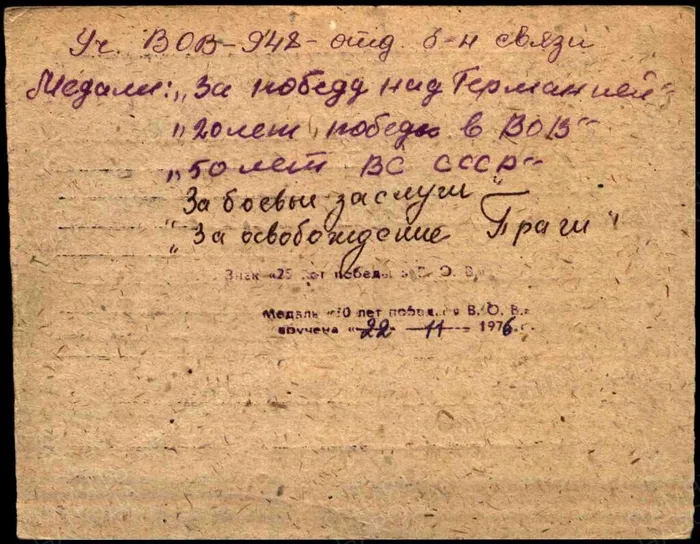 Уч. ВОВ-948-отд. б-н связи
Медали: „За победу над Германией“
„20 лет победы в ВОВ“
„50 лет ВС СССР“
„За боевые заслуги“
„За освобождение Праги“
Знак «25 лет победы в В. О. В.
Медаль «30 лет победы в В. О. В.»
вручена «22» 11 1976 г.